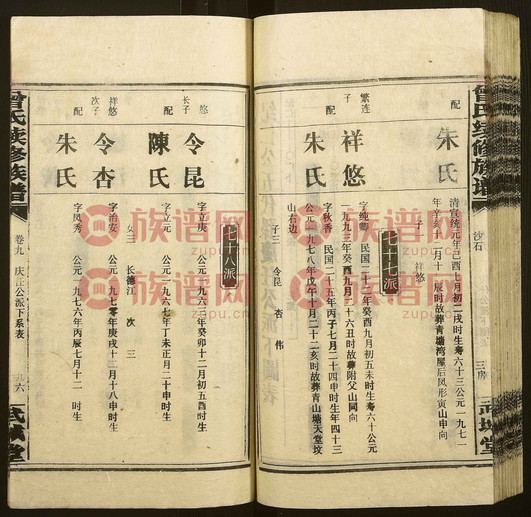 曾氏续修族谱
沙石
三房
武城堂
配
朱氏
清宣统元年己酉七月初二戌时生寿六十三公元一九七一
年辛亥十二月十一辰时故葬青塘湾屋后凤形寅山申向
子一 祥悠
七十七派
繁连
子
祥悠
字纯卿 民国二十二年癸酉九月初五未时生寿六十公元
一九九三年癸酉九月十六丑时故葬附父山同向
配
朱氏
字秋香 民国二十五年丙子七月二十四申时生年四十三
公元一九七八年戊午十月二十二亥时故葬青山塘天堂坟
山右边
子三 令昆 杏 伟
七十八派
悠
长子
令昆
字立庚 公元一九六三年癸卯十二月初五酉时生
配
陳氏
字立元 公元一九六七年丁未正月二十申时生
女三 长德江 次 三
祥悠
次子
令杏
字治安 公元一九七零年庚戌十二月十八申时生
配
朱氏
字凤秀 公元一九七六年丙辰七月十二 时生
曾氏续修族谱
卷九 庆江公派下系表
九六
武城堂
族谱网
zupu.cn